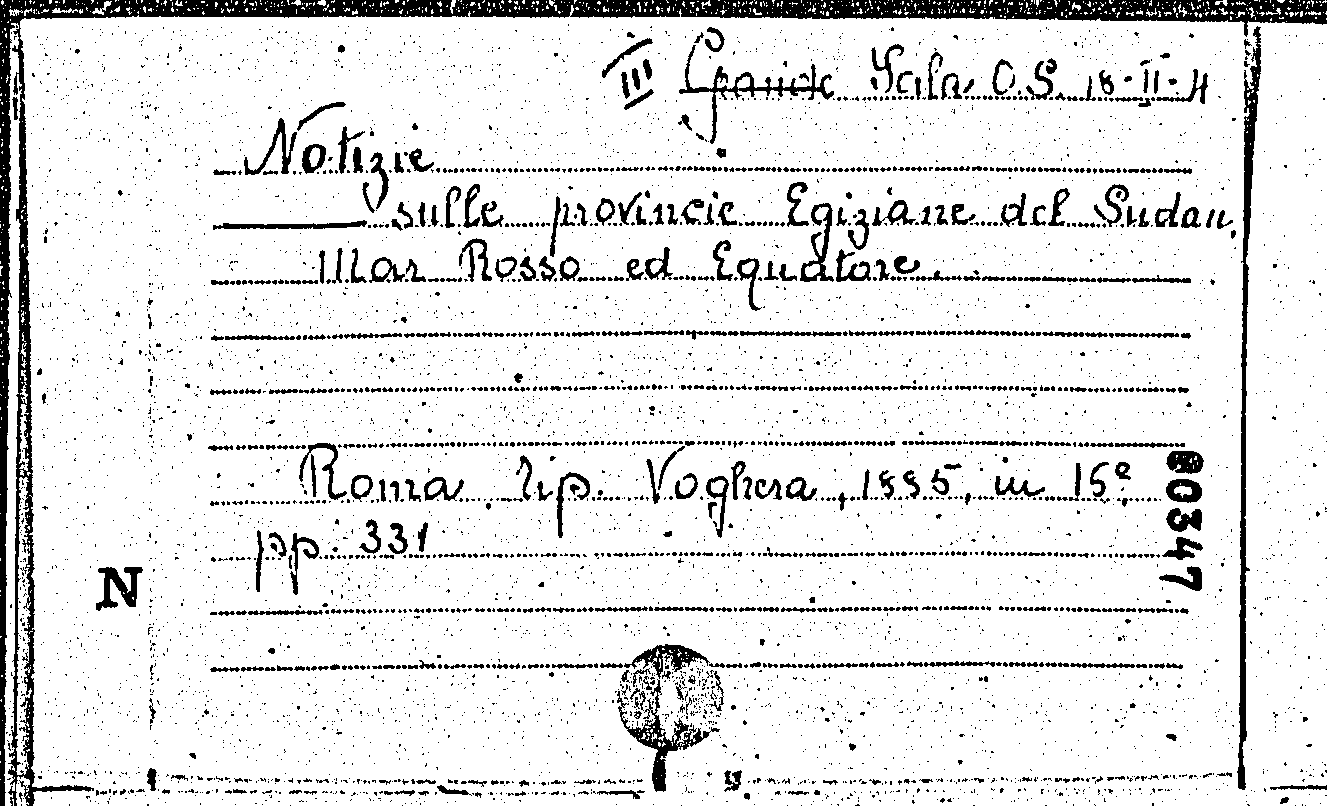 III Grande Sala O.S. 18-II-4
Notizie
sulle provincie Egiziane del Sudan,
Mar Rosso ed Equatore.
Roma Tip. Voghera, 1885, in 16º
pp. 331
N
00347